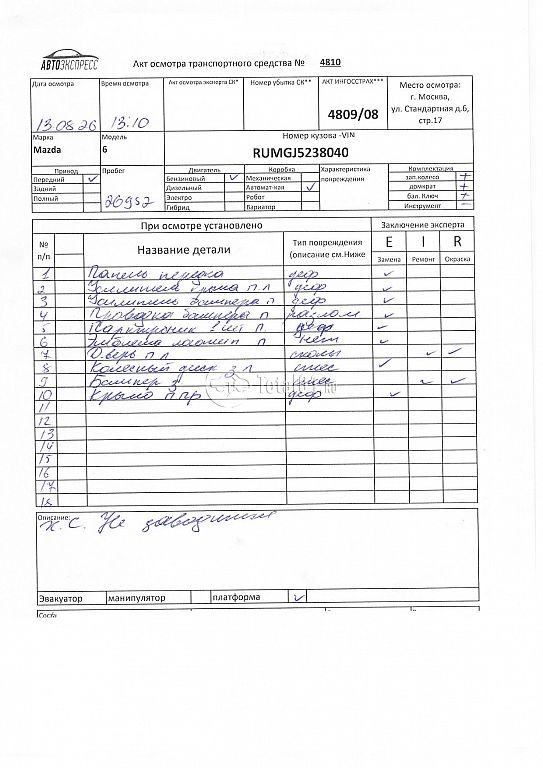 АВТОЭКСПРЕСС
Акт осмотра транспортного средства № 4810
Дата осмотра
Время осмотра
Акт осмотра эксперта СК*
Номер убытка СК**
АКТ ИНГОССТРАХ***
Место осмотра:
г. Москва,
ул. Стандартная д.6,
стр.17
13.08.26
13:10
4809/08
Марка
Модель
Номер кузова -VIN
Mazda
6
RUMGJ5238040
Привод
Пробег
Двигатель
Коробка
Характеристика повреждения
Комплектация
Передний ✓
Бензиновый ✓
Механическая
зап.колесо +
Задний
Дизельный
Автомат-кая ✓
домкрат +
Полный
Электро
Робот
бал. Ключ +
Гибрид
Вариатор
Инструмент –
26957
При осмотре установлено
Заключение эксперта
№ п/п
Название детали
Тип повреждения (описание см.Ниже
E
I
R
Замена
Ремонт
Окраска
1 Панель передка деф ✓
2 Усилитель п л деф ✓
3 Усилитель бампера п деф ✓
4 Проводка бампера п разлом ✓
5 Парктроник 2 шт п. деф ✓
6 Эмблема п нет ✓
7 Дверь п л сколы ✓ ✓
8 Колесный диск з л ✓
9 Бампер з ✓ ✓
10 Крыло п пр деф ✓
11
12
13
14
15
16
17
18
Описание:
Не заводится
Эвакуатор
манипулятор
платформа ✓